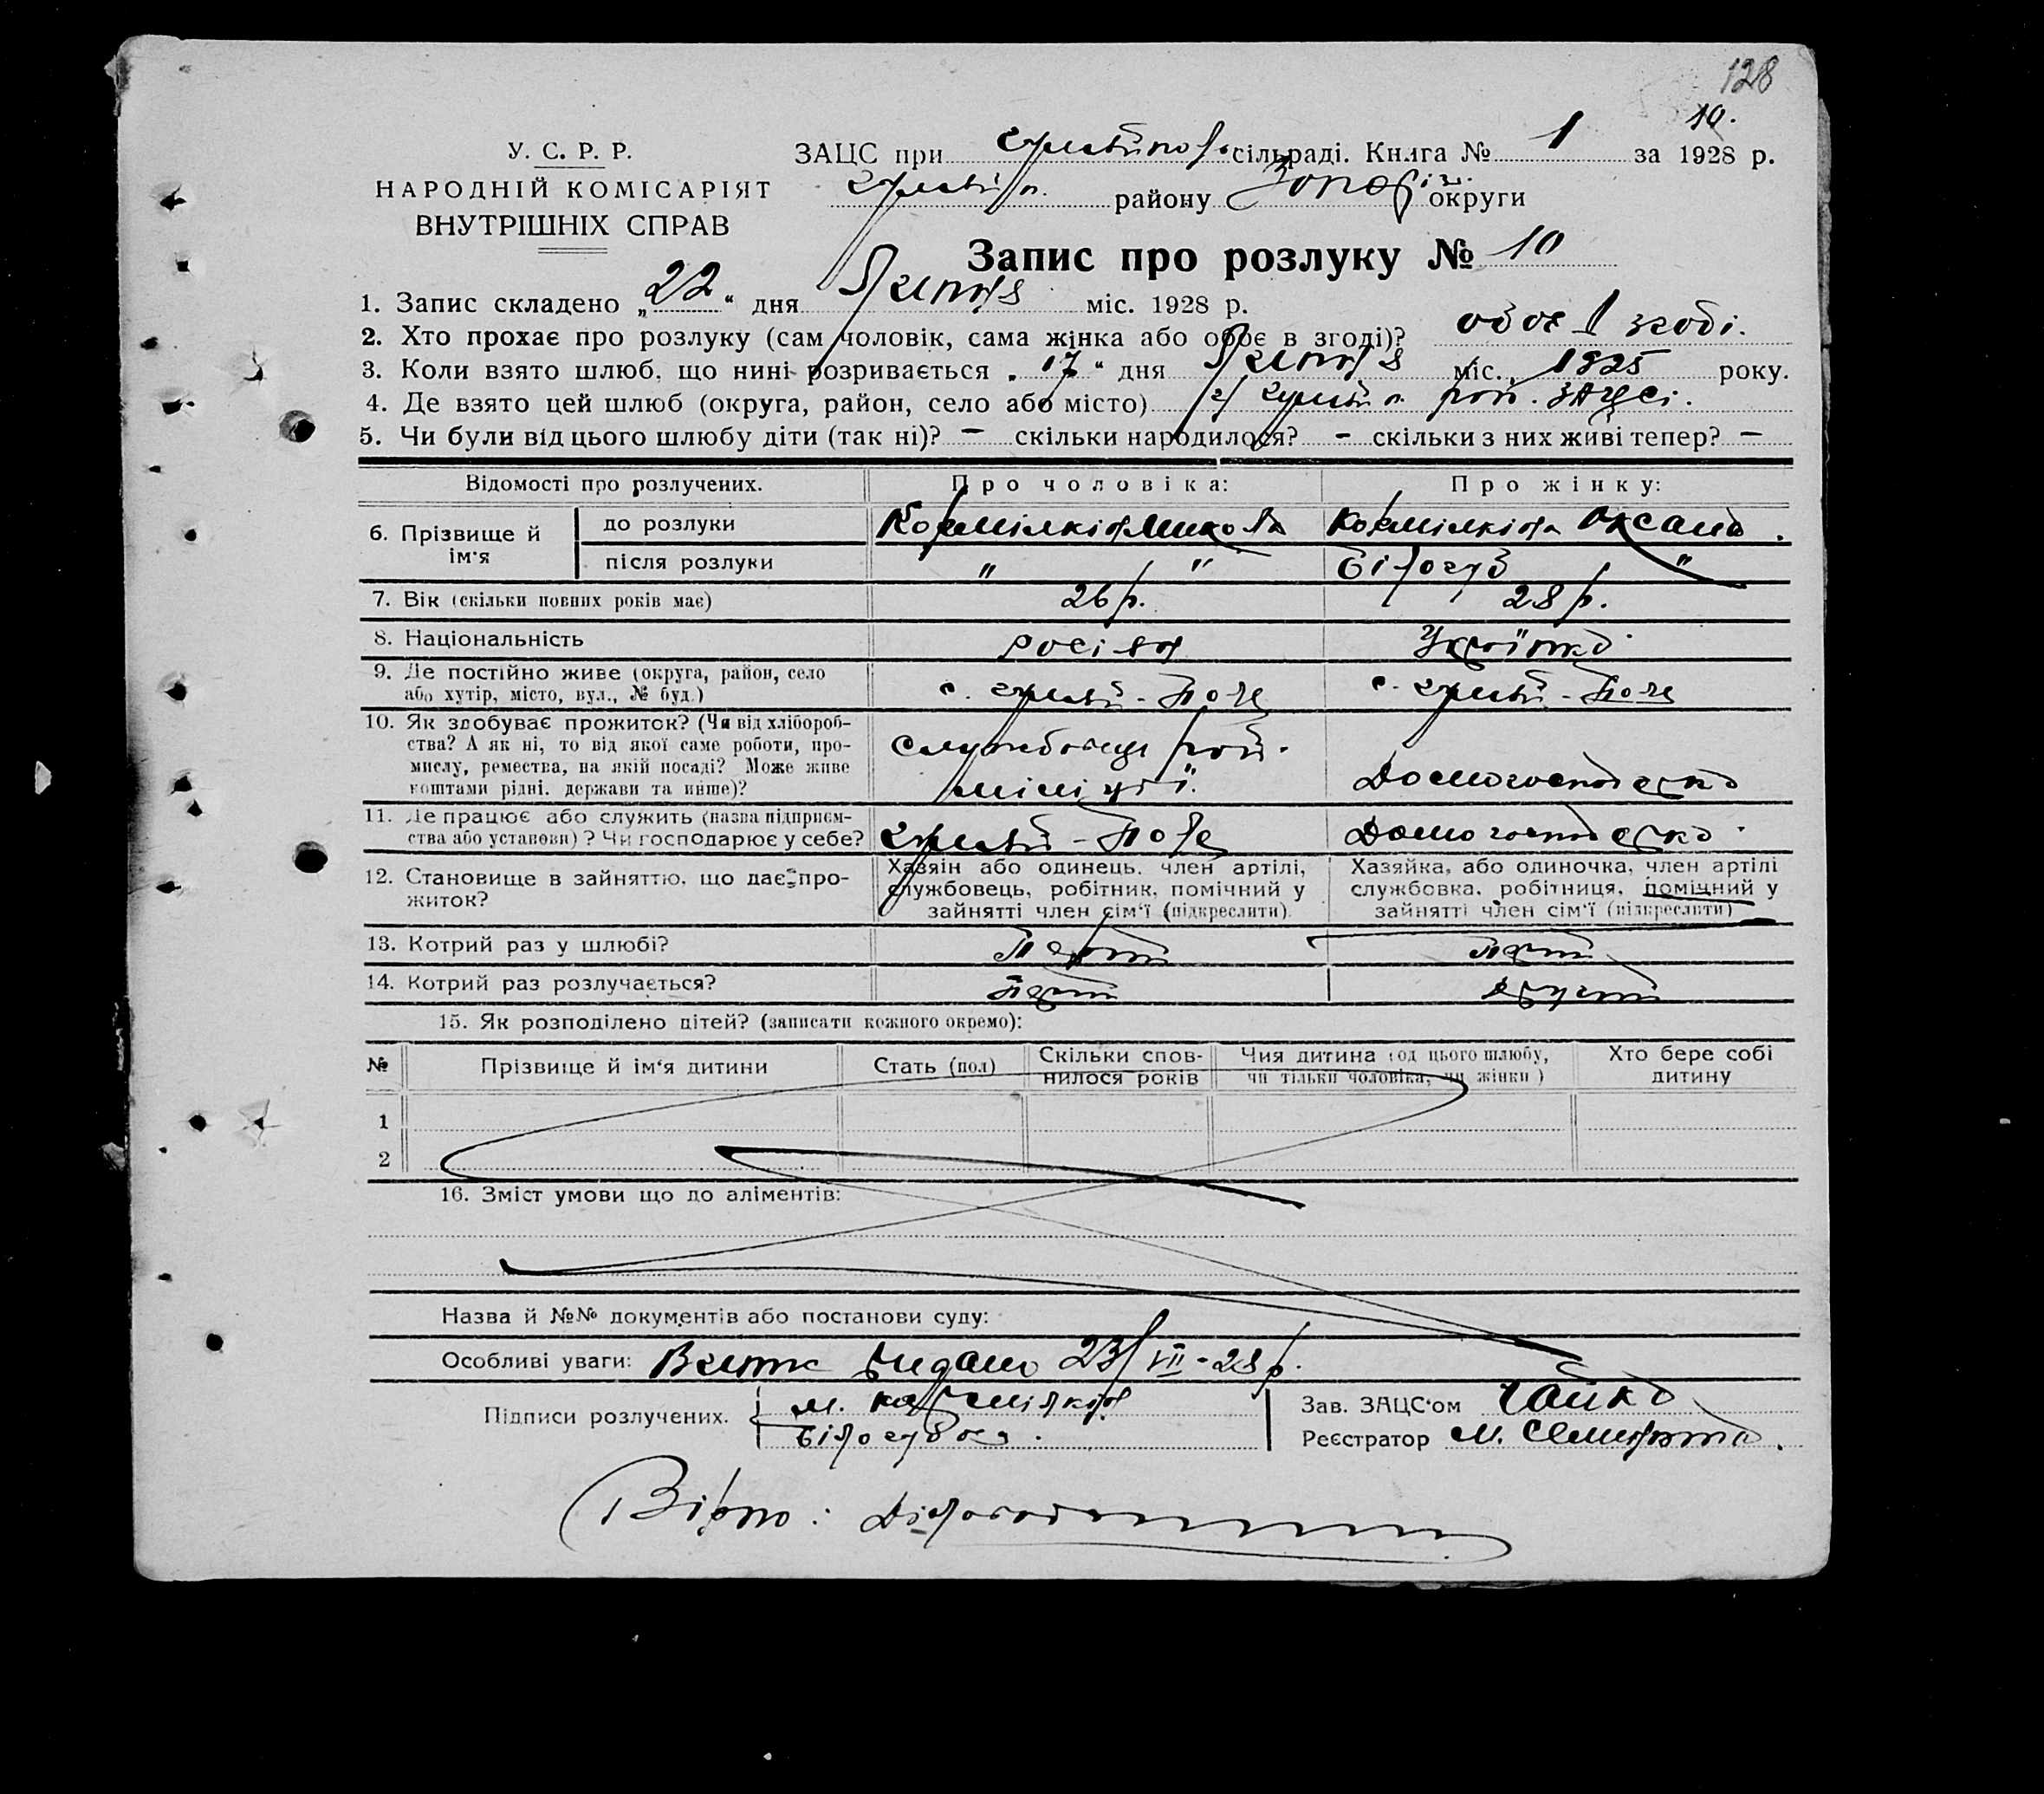 128
10.
У. С. Р. Р.
НАРОДНІЙ КОМІСАРІЯТ
ВНУТРІШНІХ СПРАВ
ЗАЦС при сільраді. Книга № 1 за 1928 р.
району округи
Запис про розлуку № 10
1. Запис складено „22“ дня міс. 1928 р.
2. Хто прохає про розлуку (сам чоловік, сама жінка або обоє в згоді)? обоє в згоді.
3. Коли взято шлюб, що нині розривається „17“ дня міс. 1925 року.
4. Де взято цей шлюб (округа, район, село або місто) рай. ЗАЦСі.
5. Чи були від цього шлюбу діти (так ні)? — скільки народилося? - скільки з них живі тепер? —
Відомості про розлучених. Про чоловіка: Про жінку:
6. Прізвище й ім'я до розлуки Микола Оксана.
після розлуки " " "
7. Вік (скільки повних років має) 26 р. 28 р.
8. Національність росіян Українка
9. Де постійно живе (округа, район, село
або хутір, місто, вул., № буд.) с. Гуляй-Поле с. Гуляй-Поле
10. Як здобуває прожиток? (Чи від хлібороб-
ства? А як ні, то від якої саме роботи, про-
мислу, ремества, на якій посаді? Може живе
коштами рідні, держави та инше)?
службовець рай.
міліції.
Домогосподарка
11. Де працює або служить (назва підприєм-
ства або установи)? Чи господарює у себе? Гуляй-Поле Домогосподарка
12. Становище в зайняттю, що дає про-
житок?
Хазяїн або одинець, член артілі,
службовець, робітник, помічний у
зайнятті член сім'ї (підкреслити).
Хазяйка, або одиночка, член артілі
службовка, робітниця, поміщний у
зайнятті член сім'ї (підкреслити)
13. Котрий раз у шлюбі? Перший
14. Котрий раз розлучається? Перший
15. Як розподілено дітей? (записати кожного окремо):
№ Прізвище й ім'я дитини Стать (пол) Скільки спов-
нилося років Чия дитина (од цього шлюбу,
чи тільки чоловіка, чи жінки) Хто бере собі
дитину
1
2
16. Зміст умови що до аліментів:
Назва й №№ документів або постанови суду:
Особливі уваги: видано 23/VII-28 р.
Підписи розлучених.
М.
Зав. ЗАЦС'ом Гайко
Реєстратор М.
Вірно: